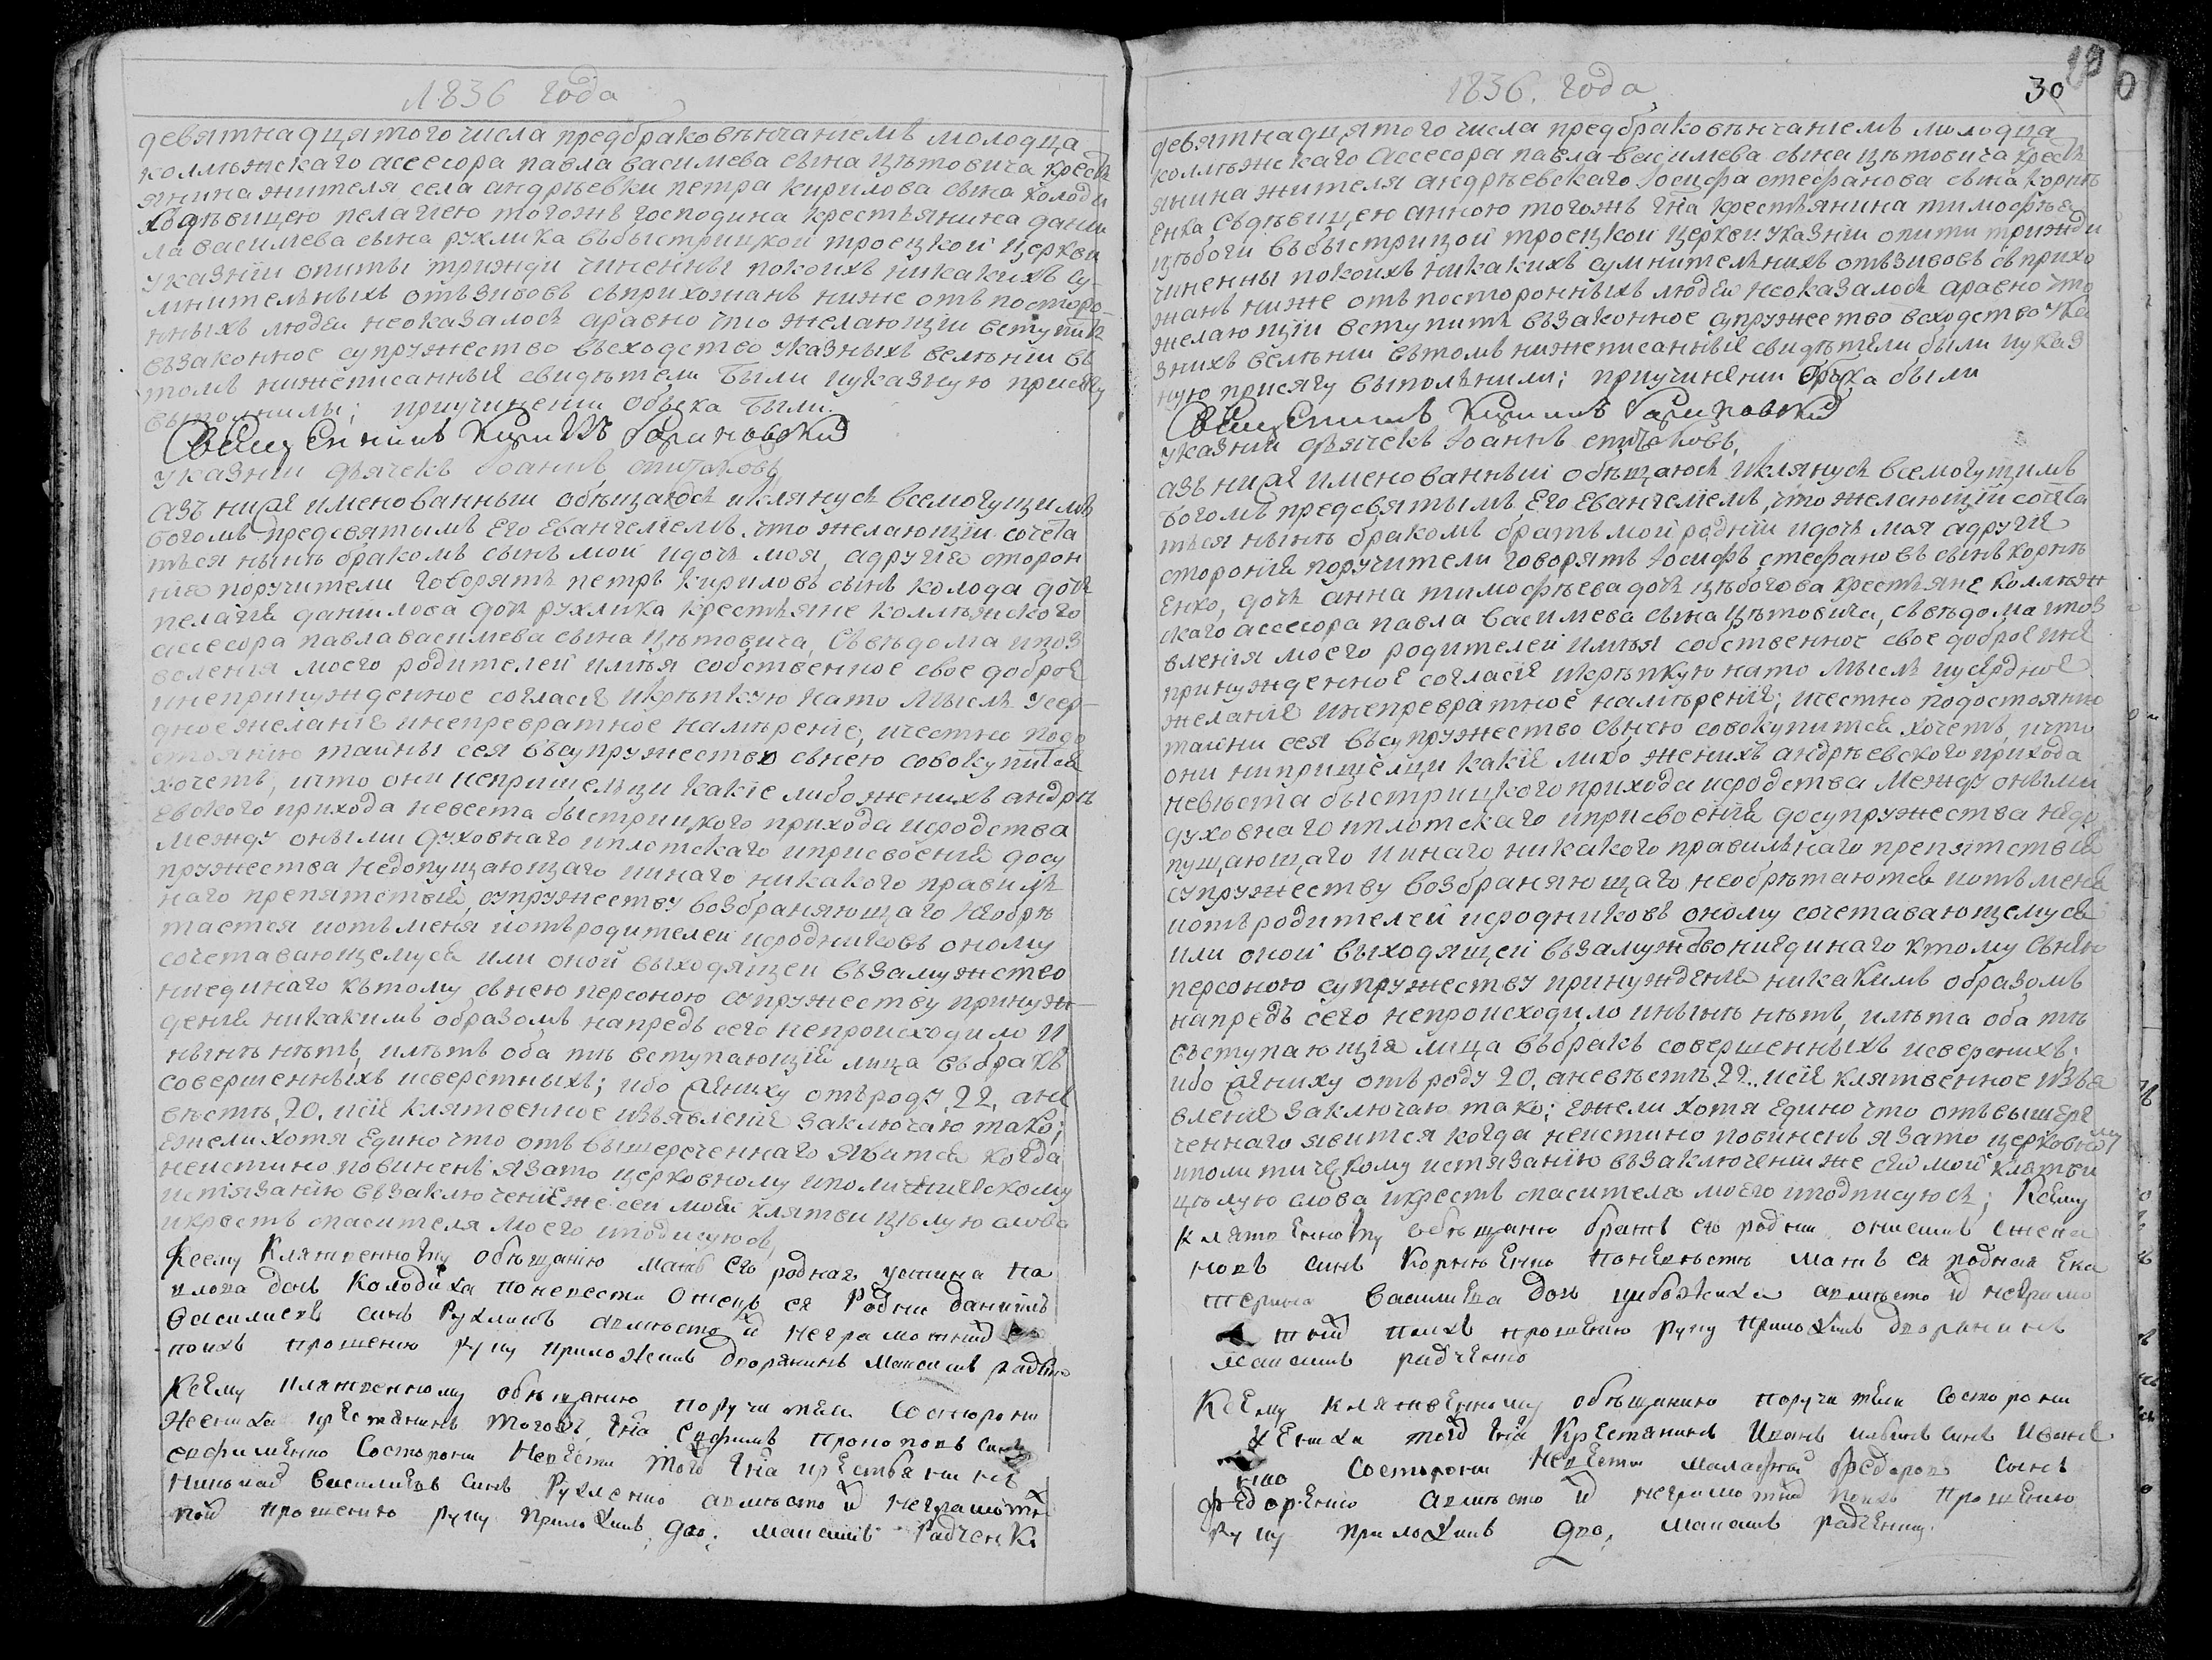 1836 года
девятнадцятого числа предбраковѣнчаниемъ молодца
коллѣжскаго асессора павла василиева сына цѣтовича кресть
янина жителя села андрѣевки петра кирилова сына колоди
здѣвицею пелагиею тогожъ господина крестьянина дани
ла василиева сына рухлика въбыстрицкой троецкой церкви
указнїи опиты трижди чиненны покоихъ никакихъ су
мнительныхъ отъзивовъ съприхожанъ ниже отъ посторо
нныхъ людеи неоказалось аравно что желающїи вступить
взаконное супружество въсходство указныхъ велѣнїи въ
томъ нижеписанныя свидѣтели были иуказную присягу
выполнилы; приучинении обыска были.
Священникъ Кирилъ
указнїи дячекъ Иоаннъ
азъ ниже именованныи обѣщаюсъ иклянусь всемогущимъ
богомъ предсвятымъ Его Евангелиемъ. что желающїи сочета
тьсянынѣ бракомъ сынъ мои идочъ моя, адругїя сторон
нїя поручители говорятъ петръ кириловъ сынъ колода дочь
пелагїя данилова дочъ рухлика крестьяне коллѣжского
ассесора павла василиева сына цѣтовича, свѣдома ипоз
воления моего родителей имѣя собственное свое доброе
инепринужденное согласїе икрѣпкую нато мысль усер
дное желанїе инепревратное намѣрение, ичестно подо
стоянїю таины сея въсупружество снею совокупится
хочетъ, ичто они непришельци какїе либо женихъ андрѣ
евского прихода невеста быстрицкого прихода исродства
между оными духовнаго иплотскаго иприсвоения досу
пружества недопущающаго иинаго никакого правилъ
наго препятствїя, супружеству возбраняющаго необрѣ
тается иотъменя иотъродителеи исродниковъ оному
сочетавающемуся или оной выходящеи взамужство
ниединаго кътому снею персоною супружеству принуж
денїя никакимъ образомъ напредь сего непроисходило и
нынѣ нѣтъ, илѣтъ оба тѣ вступающїя лица въбракъ
совершенныхъ исверстныхъ; ибо жениху отъроду 22, ане
вѣстѣ 20. исїе клятвенное изъявленїе заключаю тако;
ежели хотя едино что отъ вышереченнаго явится когда
неистино повиненъ язато церковному иполитическому
истязанїю взаключенїе же сеи моея клятви цѣлую слова
икрестъ спасителя моего иподписуюсъ,
Ксему Клятвенному обѣщанїю матъ его родная устина па
влова дочъ Колодиха поневести отецъ ея Родни Данїилъ
Василиевъ синъ Рухликъ авмѣсто и неграмотний
поихъ прошению руку приложилъ дворянинъ
Ксему клятвенному обѣщанию поручители Состорони
Жениха крестянинъ тогожъ Гна Евфимъ Прокоповъ синъ
евфименко Состорони Невести того Гна крестьянинъ
Николай Василиевъ Синъ Рухленко авмѣсто и неграмотн
поих прошению руку приложилъ дво: Радченко
1836. года
30
девятнадцятого числа предбраковѣнчаниемъ молодца
коллѣжскаго Ассесора павла василиева сына цѣтовича кресть
янина жителя андрѣевскаго Иосифа стефанова сына корнѣ
енка съдѣвицею анною тогожъ Гна крестьянина тимофѣя
цѣбоги въбыстрицой троецкой церкви указнїи опити трижди
чиненны покоихъ никакихъ сумнительнихъ отъзивовъ съприхо
жанъ ниже отъ посторонныхъ людеи неоказалось аравно что
желающїи вступить взаконное супружество всходство ука
знихъ велѣнїи вътомъ нижеписанныя свидѣтели были иуказ
ную присягу выполънили; приучинении обыска были
Священникъ Кирилъ
указнїи дячекъ Иоаннъ
азъ ниже именованныи обѣщаюсъ иклянусъ всемогущимъ
богомъ предсвятымъ Его Евангелїемъ, что желающїи сочета
ться нынѣ бракомъ братъ мой роднїи идочъ моя адругїя
сторонїя поручители говорятъ Иосифъ стефановъ сынъ корнѣ
енко, дочь анна тимофѣева дочь цѣбогова крестьяне коллѣж
скаго ассесора павла василиева сына цѣтовича, свѣдома ипоз
вленїя моего родителей имѣя собственное свое доброе ине
принужденное согласїе икрѣпкую нато мысль иусердное
желанїе инепревратное намѣренїе; ичестно подостоянїю
таини сея въсупружество снею совокупится хочетъ, ичто
они нипришелци какїе либо женихъ андрѣевского прихода
невѣста быстрицкого прихода исродства между оными
духовнаго иплотскаго иприсвоенїя досупружества недо
пущающаго иинаго никакого правильнаго препятствїя
супружеству возбраняющаго необрѣтаются иотъ меня
иотъродителей исродниковъ оному сочетавающемуся
или оной выходящей взамужство ниединаго ктому снею
персоною супружеству принужденїя никакимъ образомъ
напредъ сего непроисходило инынѣ нѣтъ, илѣта оба тѣ
въступающїя лица въбракъ совершенныхъ исверснихъ;
ибо жениху отъроду 20. аневѣстѣ 22. исїе клятвенное изъя
вленїе заключаю тако; ежели хотя едино что отъвышере
ченнаго явится когда неистино повиненъ язато церковному
иполитическому истязанїю взаключении же сея моей клятви
цѣлую слова икрестъ спасителя моего иподписуюсъ; Ксему
клятвенному обѣщанию братъ его родни
новъ синъ Корнѣенко Поневѣсти мать ея родная Ека
терина Василиева Дочь цибожиха авмѣсто и неграмо
тний поихъ прошению руку приложилъ дворянинъ
радченко
Ксему клятвенному обѣщанию поручители Состорони
жениха той Гна Крестянинъ Иванъ синъ Иване
нко Состорони Невести Малафей Федоров Синъ
Федоренко авмѣсто и неграмотний поихъ прошению
руку приложилъ дво, радченко.